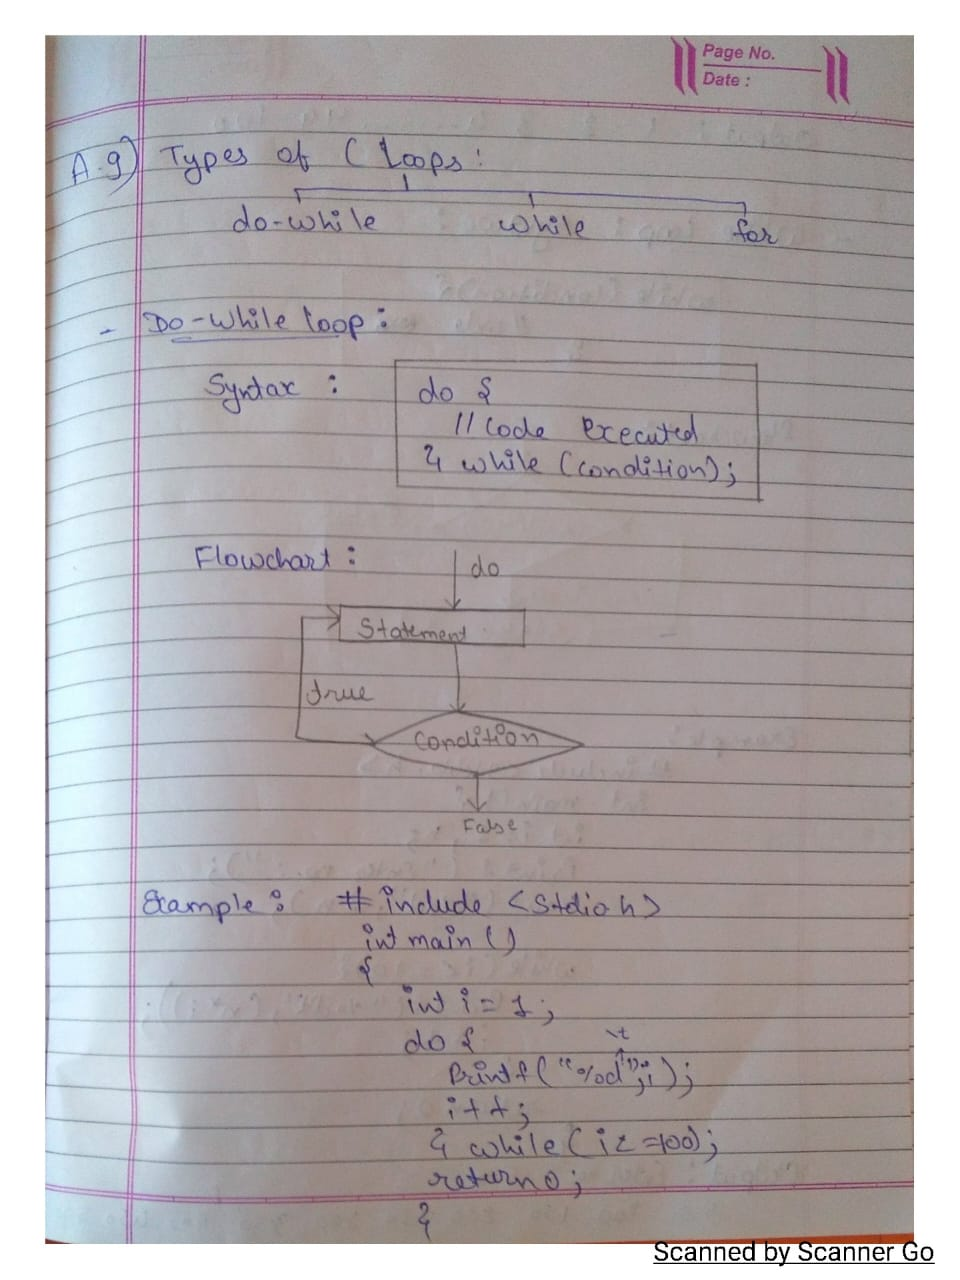 Page No.
Date :
A.9) Types of C Loops :
do-while while for
- Do-while loop :
Syntax : do {
// Code Executed
} while (condition);
Flowchart : do
Statement
true
Condition
False
Example : # include <stdio h>
int main ()
{
int i = 1 ;
do {
\t
printf("%d",i);
i++;
} while (i<=100);
return 0 ;
}
Scanned by Scanner Go